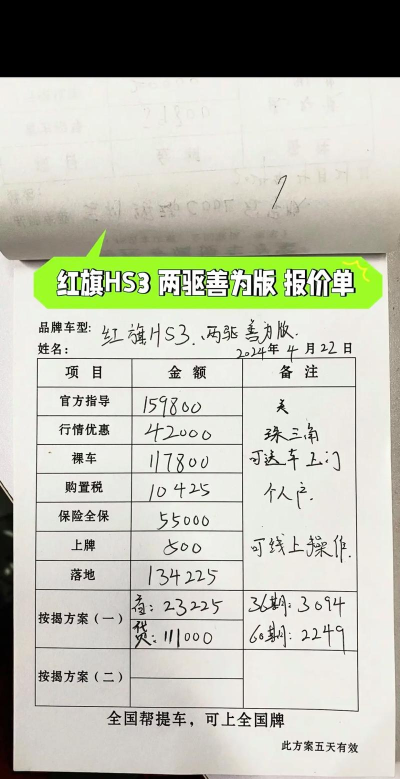 红旗HS3 两驱善为版 报价单
品牌车型: 红旗HS3.两驱善为版.
姓名: 2024年4月22日
项目 金额 备注
官方指导 159800
行情优惠 42000 珠三角
裸车 117800 可送车上门
购置税 10425 个人户.
保险全保 55000
上牌 500 可线上操作.
落地 134225
按揭方案(一) 首: 23225 36期: 3094
贷: 111000 60期: 2249
按揭方案(二)
全国帮提车,可上全国牌
此方案五天有效